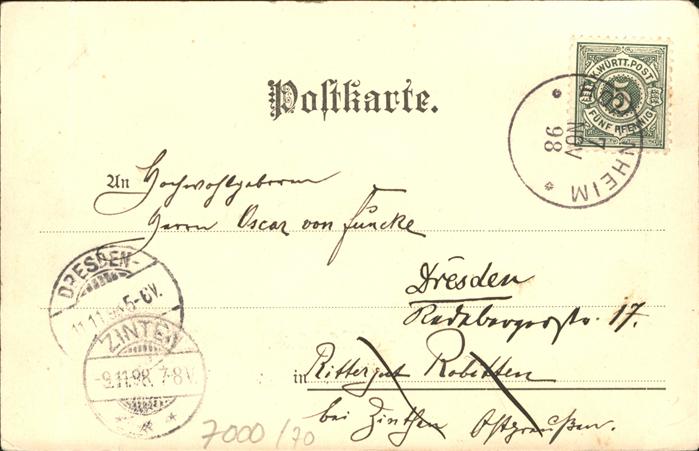 Postkarte.
K. WÜRTT. POST
5
FÜNF PFENNIG
HEIM
7
NOV
98
An Hochwohlgeboren
Herrn Oscar von Funcke
Dresden
Radebergerstr. 17.
in Rittergut Robitten
bei Zinthen Ostpreußen.
DRESDEN-
11.11.98. 5-6V.
ZINTEN
-9.11.98. 7-8V.
7000/70